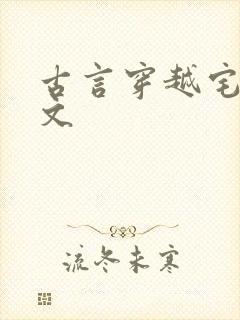 古言穿越宅
文
流冬未寒